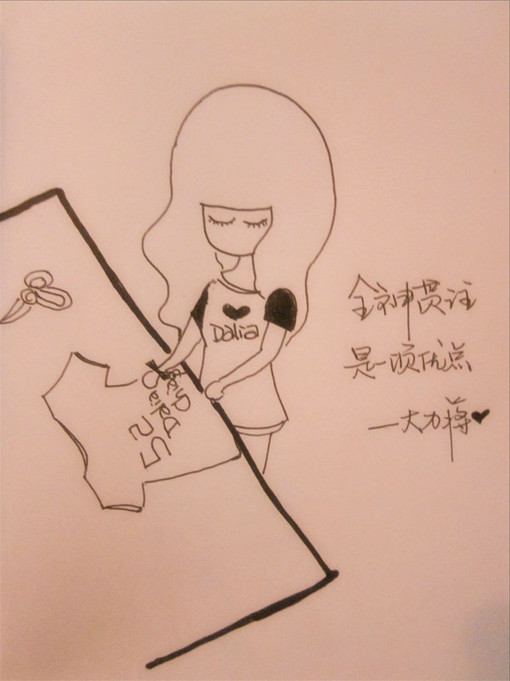 Dalia
Dalia
52
全神贯注
是一项优点
—大力蒋